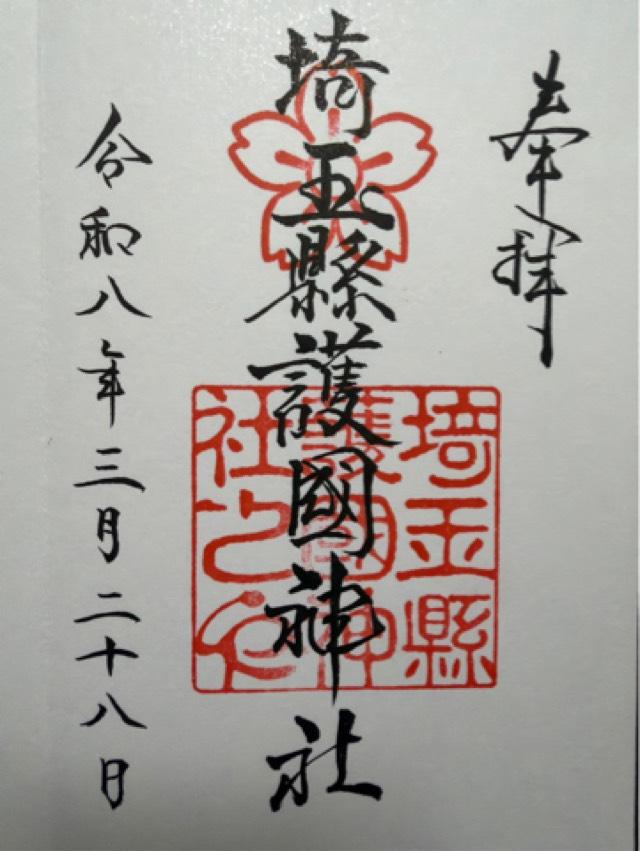 奉拝
埼玉縣護國神社
埼玉縣
護國神
社之印
令和八年三月二十八日